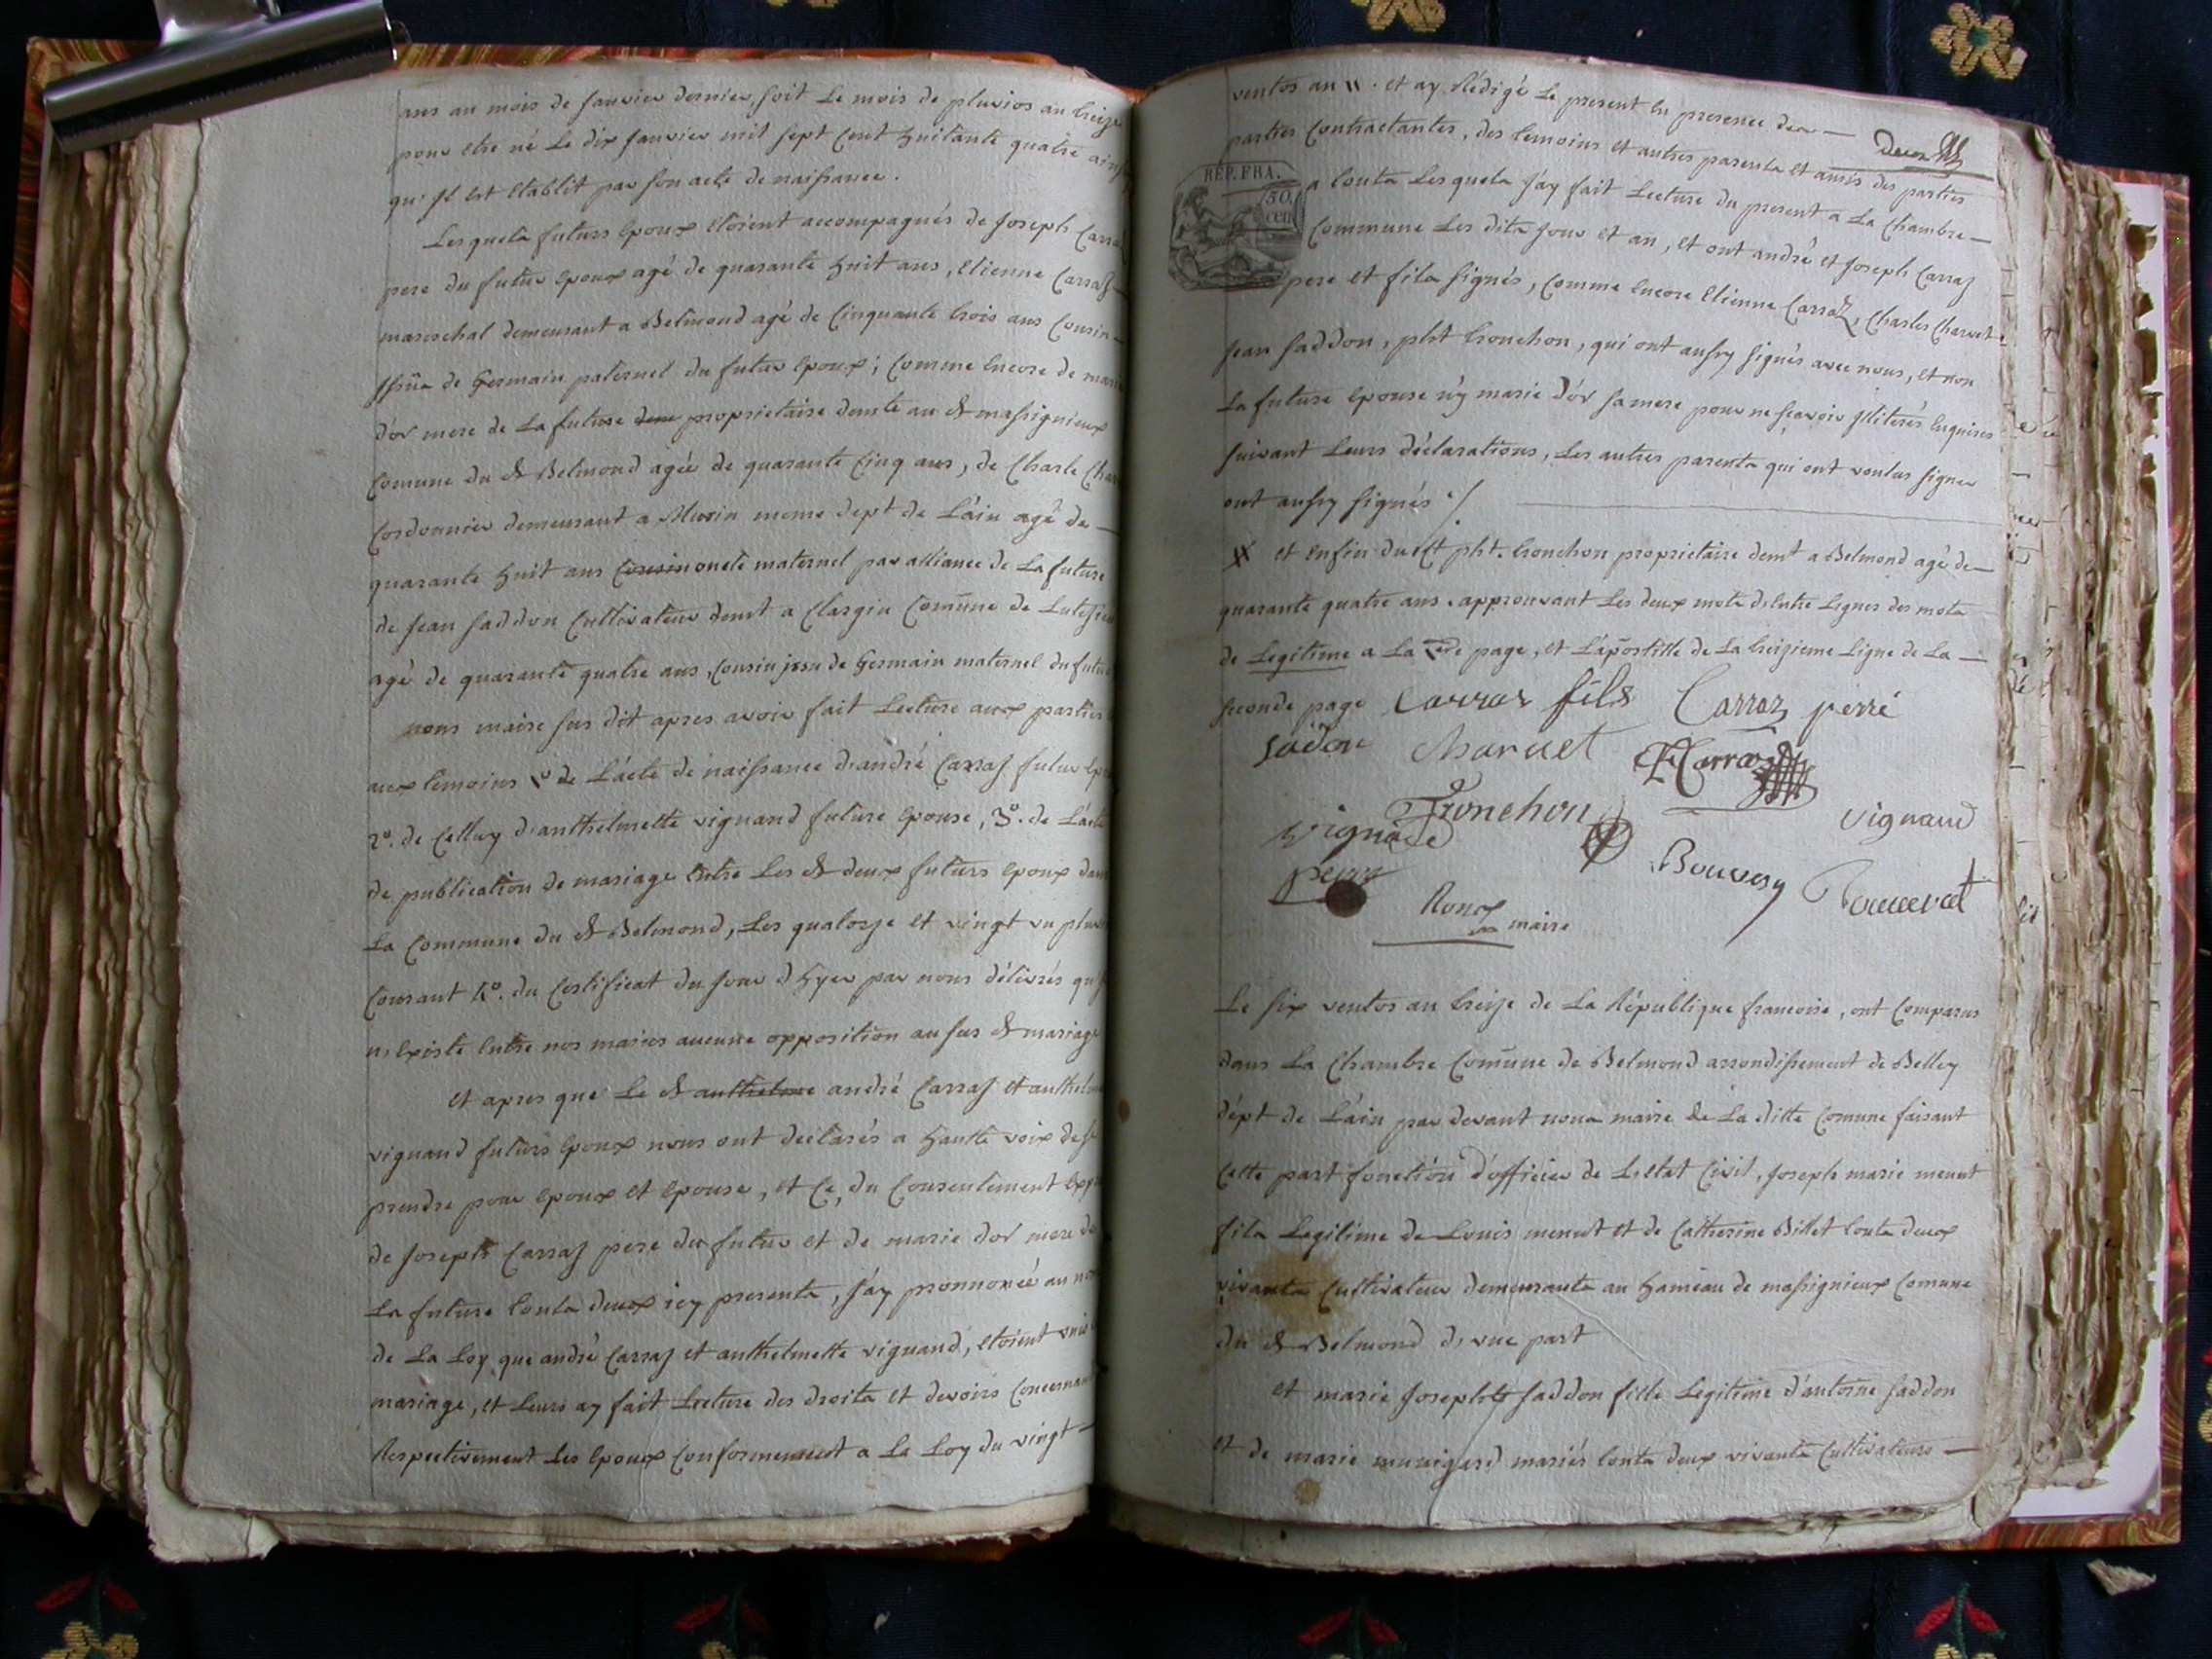 ans au mois de janvier dernier, soit Le mois de pluvios an treize
pour etre né Le dix janvier mil sept Cent huitante quatre ainsy
qu'jl est Etablit par son acte de naissance.
Lesquels futurs Epoux Etoient accompagnés de joseph Carraz
pere du futur Epoux agé de quarante huit ans, Etienne Carraz
mareschal demeurant a Belmond agé de Cinquante trois ans Cousin
de Germain paternel du futur Epoux; Comme Encore de marie
d'or mere de La future proprietaire demte au dt massignieux
Comune du dt Belmond agée de quarante Cinq ans, de Charle
Cordonnier demeurant a Muzin meme dept de L'ain agé de
quarante huit ans Cousin oncle maternel par alliance de La future
de jean saddon Cultivateur demt a Comune de
agé de quarante quatre ans, Cousin jssu de Germain maternel du futur
nous maire sus dit apres avoir fait Lecture aux parties
aux temoins 1° de L'acte de naissance d'andré Carraz futur
2°. de Celluy d'anthelmette vignand future Epouse, 3°. de L'acte
de publication de mariage Entre Les dt deux futurs Epoux dans
La Commune du dt Belmond, Les quatorze et vingt un
Courant 4°. du Certificat du jour d'hyer par nous délivrés
n'Existe Entre nos mains aucune opposition au sus dt mariage
Et apres que Le dt andré Carraz et
vignand futurs Epoux nous ont déclarés a haute voix de se
prendre pour Epoux et Epouse, et Ce, du Consentement
de joseph Carraz pere du futur et de marie d'or mere de
La future touts deux icy presents, j'ay prononcé au nom
de La Loy que andré Carraz et anthelmette vignand, Etoient unis
mariage, et Leurs ay fait Lecture des droits et devoirs Concernant
Respectivement Les Epoux Conformement a La Loy du vingt
ventos an xi. et ay Rédigé Le present En presence des
parties Contractantes, des temoins et autres parents et amis des parties
REP. FRA.
50
cen
a touts Lesquels j'ay fait Lecture du present a La Chambre
Commune Les dits jour et an, et ont andré et joseph Carraz
pere et fils signés, Comme Encore Etienne Carraz, Charles Charvet
jean saddon, pht tronchon, qui ont aussy signés avec nous, et non
La future Epouse n'y marie d'or sa mere pour ne sçavoir Enquises
suivant Leurs déclarations, Les autres parents qui ont voulus signer
ont aussy signés ./.
et Enfin du dt pht. tronchon proprietaire demt a Belmond agé de
quarante quatre ans. approuvant Les deux mots d'Entre Lignes des mots
de Legitime a La page, et L'apostille de La treizieme Ligne de La
seconde page Carraz fils Carraz perre
sadon Charvet E Carraz
Tronchon vignaud
Vignaud
Bouvery
Roux
maire
Le six ventos an treize de La République francoise, ont Comparus
dans La Chambre Comune de Belmond arrondissement de Belley
dépt de L'ain par devant nous maire de La ditte Comune faisant
Cette part fonction d'officier de L'etat Civil, joseph marie menut
fils Legitime de Louis menut et de Catherine Billet touts deux
vivants Cultivateur demeurants au hameau de massignieux Comune
du dt Belmond d'une part
Et marie josephte saddon fille Legitime d'antoine saddon
et de marie mariés touts deux vivants Cultivateurs